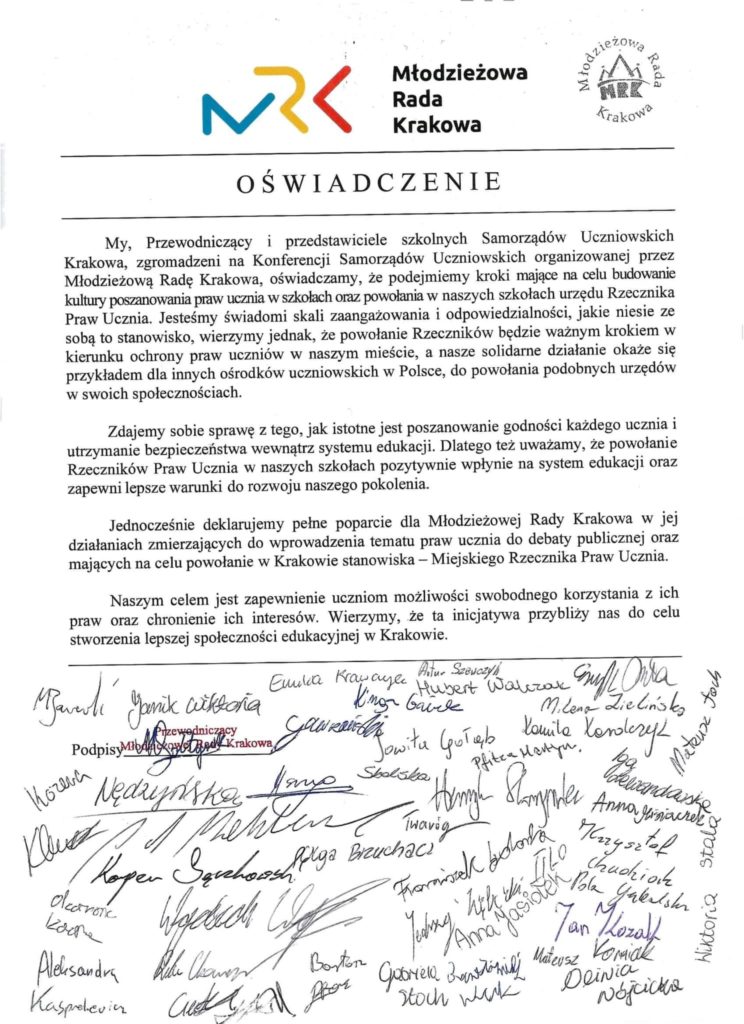 MRK
Młodzieżowa
Rada
Krakowa
Młodzieżowa Rada
MRK
Krakowa
OŚWIADCZENIE
My, Przewodniczący i przedstawiciele szkolnych Samorządów Uczniowskich
Krakowa, zgromadzeni na Konferencji Samorządów Uczniowskich organizowanej przez
Młodzieżową Radę Krakowa, oświadczamy, że podejmiemy kroki mające na celu budowanie
kultury poszanowania praw ucznia w szkołach oraz powołania w naszych szkołach urzędu Rzecznika
Praw Ucznia. Jesteśmy świadomi skali zaangażowania i odpowiedzialności, jakie niesie ze
sobą to stanowisko, wierzymy jednak, że powołanie Rzeczników będzie ważnym krokiem w
kierunku ochrony praw uczniów w naszym mieście, a nasze solidarne działanie okaże się
przykładem dla innych ośrodków uczniowskich w Polsce, do powołania podobnych urzędów
w swoich społecznościach.
Zdajemy sobie sprawę z tego, jak istotne jest poszanowanie godności każdego ucznia i
utrzymanie bezpieczeństwa wewnątrz systemu edukacji. Dlatego też uważamy, że powołanie
Rzeczników Praw Ucznia w naszych szkołach pozytywnie wpłynie na system edukacji oraz
zapewni lepsze warunki do rozwoju naszego pokolenia.
Jednocześnie deklarujemy pełne poparcie dla Młodzieżowej Rady Krakowa w jej
działaniach zmierzających do wprowadzenia tematu praw ucznia do debaty publicznej oraz
mających na celu powołanie w Krakowie stanowiska – Miejskiego Rzecznika Praw Ucznia.
Naszym celem jest zapewnienie uczniom możliwości swobodnego korzystania z ich
praw oraz chronienie ich interesów. Wierzymy, że ta inicjatywa przybliży nas do celu
stworzenia lepszej społeczności edukacyjnej w Krakowie.
Artur Szewczyk
Emilia Krawczyk
Hubert Walczak
Janik Wiktoria
Kinga Gawek
Milena Zielińska
Mateusz Stoch
Przewodniczący
Podpisy Młodzieżowej Rady Krakowa
Jowita Gołąb
Kamila Kondczyk
Nędzyńska
Skalska
Iga Lewandowska
Anna
Iwaróg
Kacper
Brzuchacz
Franciszek
Krzysztof
Wiktoria Stala
Wojciech
Anna Jasiołek
Pola
Jan Kozak
Aleksandra
Kasprkewicz
Gabriela
Mateusz Koniak
Stoch
Oliwia
Wójcicka